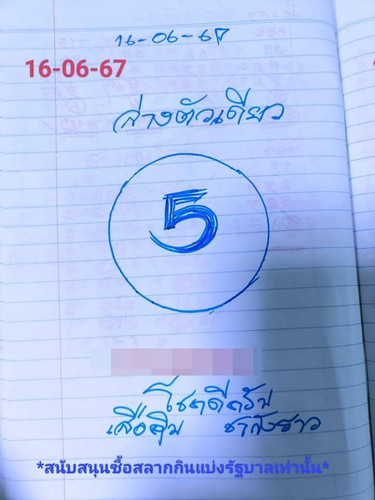 16-06-67
16-06-67
ล่างตัวเดียว
5
โชคดีครับ
*สนับสนุนซื้อสลากกินแบ่งรัฐบาลเท่านั้น*